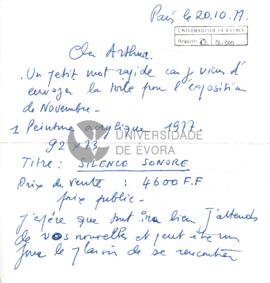 Paris le 20.10.77.
UNIVERSIDADE DE EVORA
Cher Arthur.
Un petit mot rapide car je viens d'
envoyer la toile pour l'exposition
de Novembre.
1 Peinture acrylique 1977.
92 x 73
UNIVERSIDADE
DE ÉVORA
Titre: SILENCE SONORE
Prix de vente : 4600 F.F
prix public.
J'espère que tout ira bien J'attends
de vos nouvelles et peut être un
jour le plaisir de se rencontrer